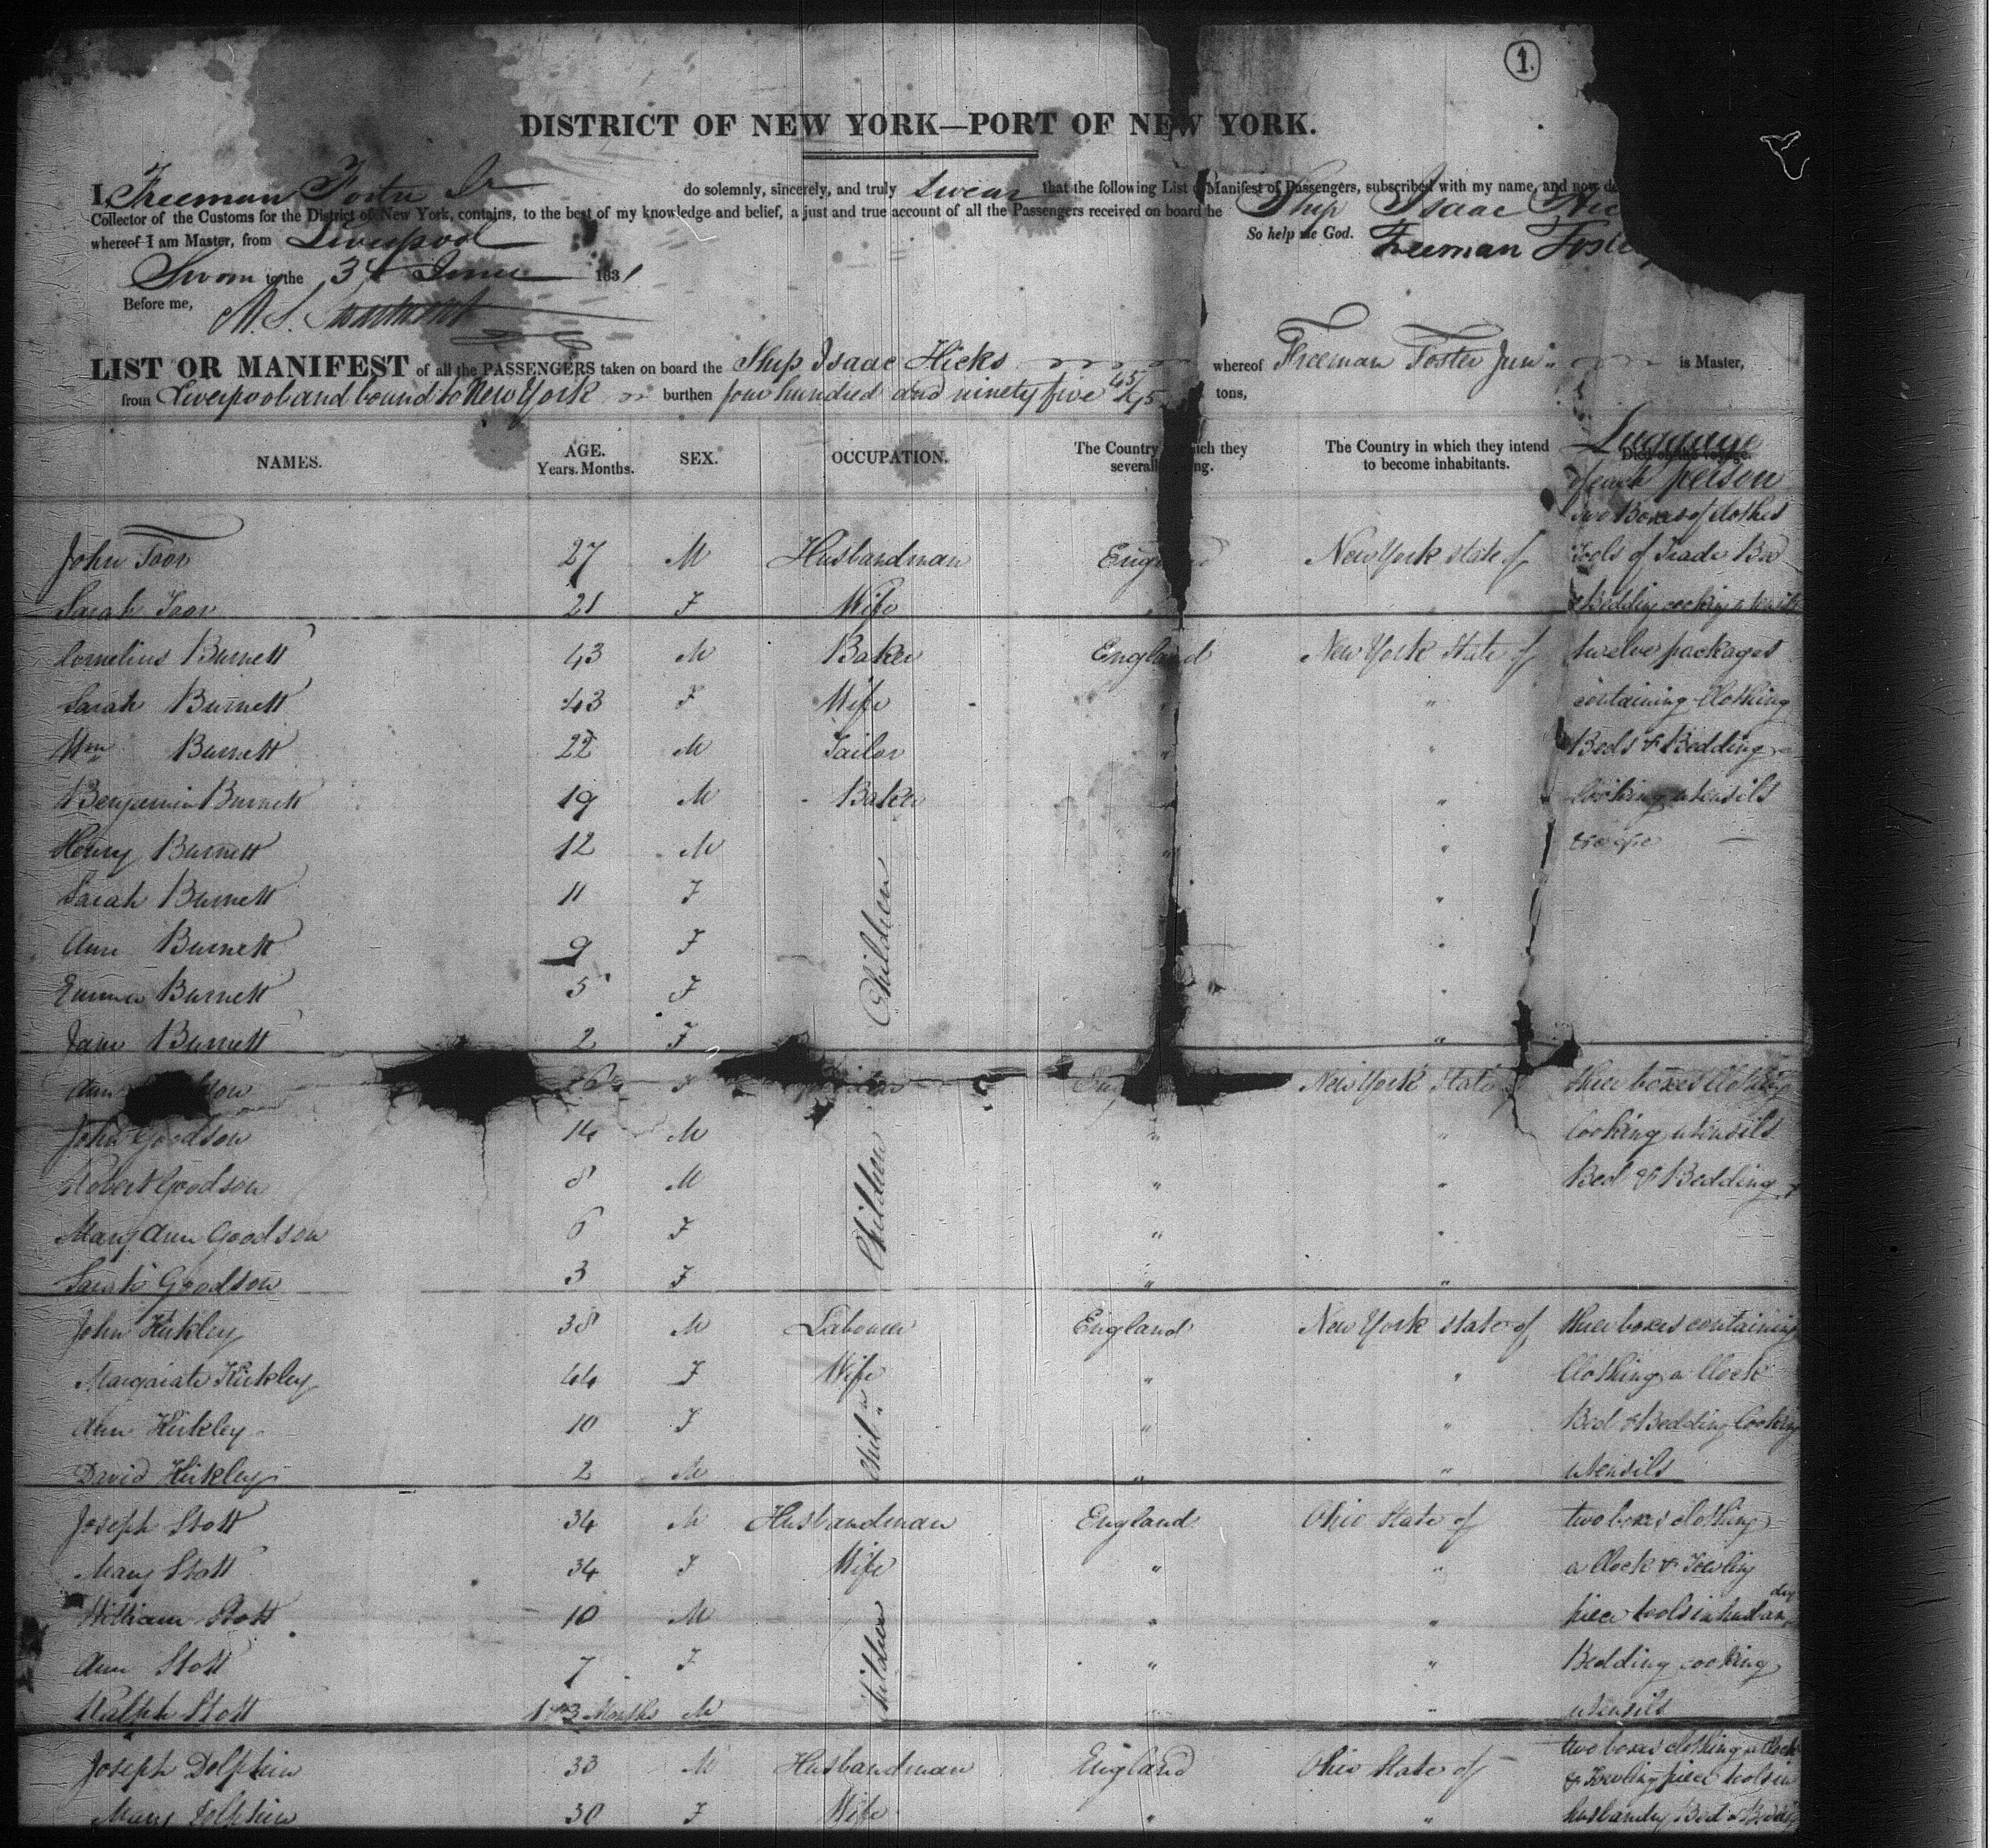 1.
DISTRICT OF NEW YORK—PORT OF NEW YORK.
I, Freeman Foster Jr do solemnly, sincerely, and truly Swear that the following List or Manifest of Passengers, subscribed with my name, and now de
Collector of the Customs for the District of New York, contains, to the best of my knowledge and belief, a just and true account of all the Passengers received on board the Ship Isaac Hic
whereof I am Master, from Liverpool So help me God. Freeman Foste
Sworn to the 3d June 1831
Before me,
LIST OR MANIFEST of all the PASSENGERS taken on board the Ship Isaac Hicks whereof Freeman Foster Junr is Master,
from Liverpool and bound to New York burthen four hundred and ninety five 45/95 tons,
NAMES. AGE. Years. Months. SEX. OCCUPATION. The Country which they several ng. The Country in which they intend to become inhabitants. Died on the voyage. Luggage
of each person
two Boxes of clothes
John Toor 27 M Husbandman Eng New York State of Tools of Trade Bed
Sarah Toor 21 F Wife " " & Bedding cooking utensils
Cornelius Burnett 43 M Baker England New York State of twelve packages
Sarah Burnett 43 F Wife " containing Clothing
Wm Burnett 22 M Tailor " " Beds & Bedding
Benjamin Burnett 19 M Baker " Cooking utensils
Henry Burnett 12 M " "
Sarah Burnett 11 F "
Ann Burnett 9 F Children "
Emma Burnett 5 F "
Jane Burnett 2 F "
Ann F Eng New York State three boxes Clothing
John Goodson 14 M " " Cooking utensils
Robert Goodson 8 M " " Bed & Bedding
Mary Ann Goodson 6 F Children " "
Sarah Goodson 3 F " "
John Kirkley 38 M Labourer England New York state of three boxes containing
Margarate Kirkley 44 F Wife " " Clothing a Clock
Ann Kirkley 10 F Chiln " " Bed & Bedding Cooking
David Kirkley 2 M " " " utensils
Joseph Stott 34 M Husbandman England Ohio State of two boxes clothing
Mary Stott 34 F Wife " " a Clock & Fowling
William Stott 10 M " " piece tools in husbandry
Ann Stott 7 F Children " " Bedding cooking
Ralph Stott 1 3 Months M " " utensils
Joseph Dolphin 33 M Husbandman England Ohio State of two boxes clothing a Clock
& Fowling piece tools in
Mary Dolphin 30 F Wife " " husbandry Bed & Bedding